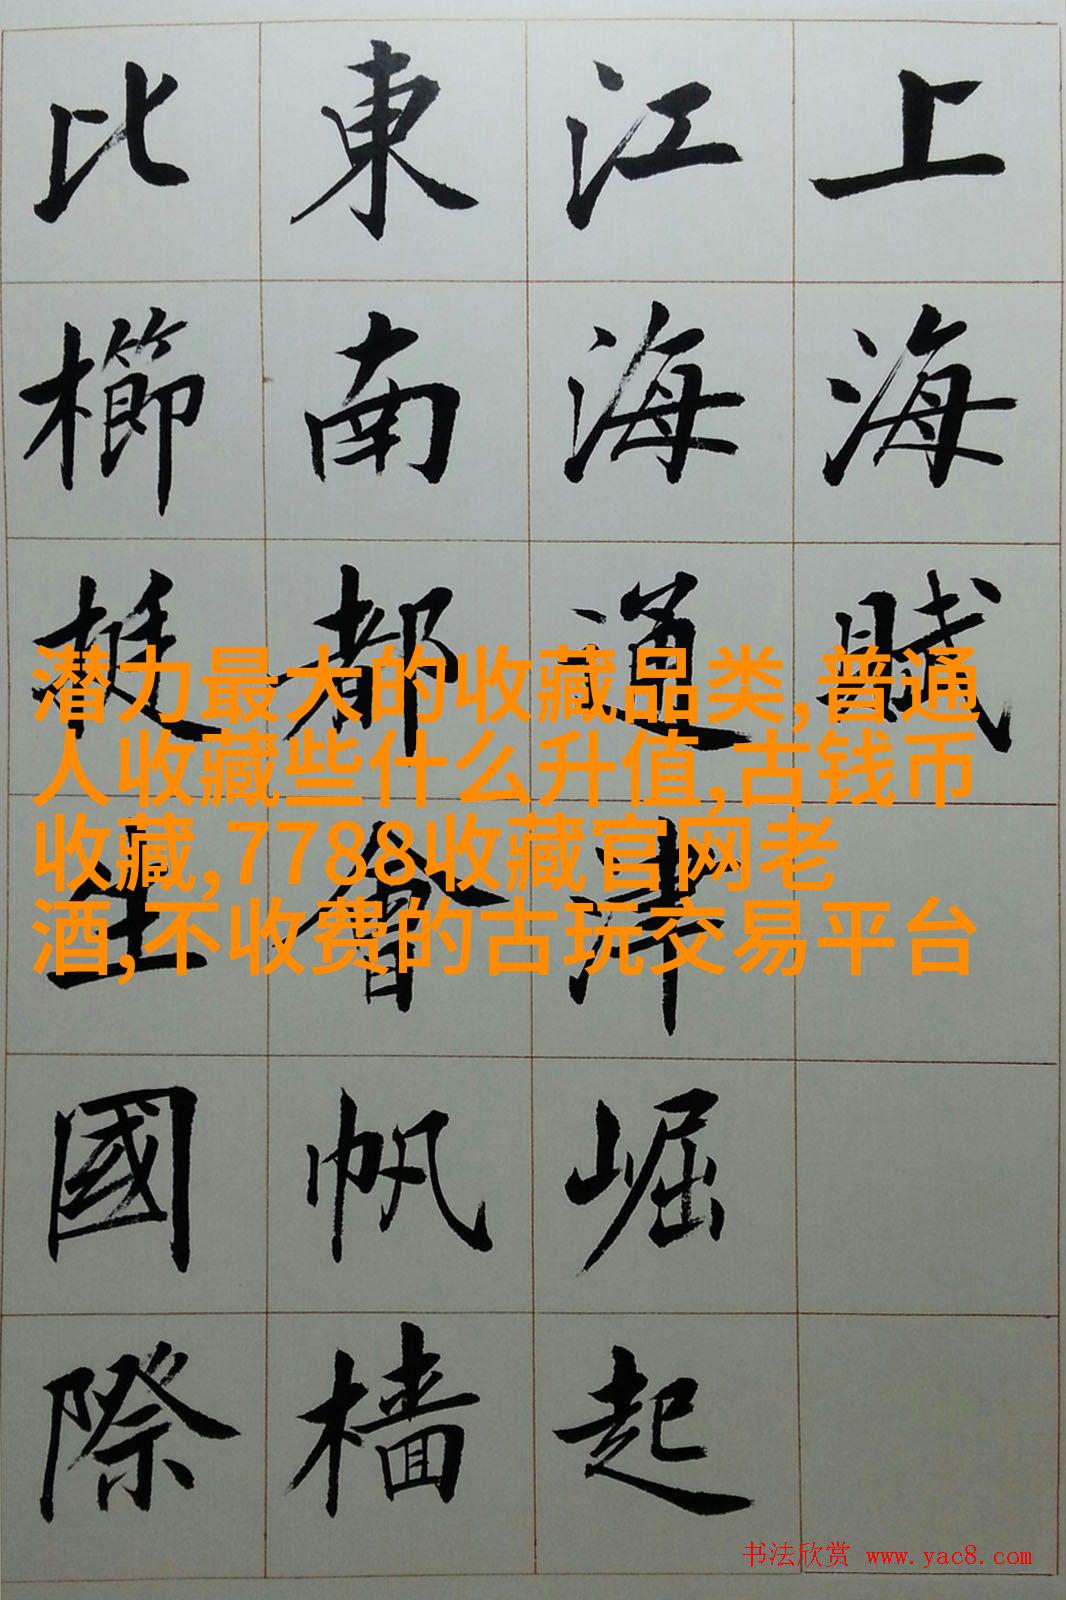 上海賦
江海通津崛起
東南都會帆檣
比櫛挺立國際
潜力最大的收藏品类,普通
人收藏些什么升值,古钱币
收藏,7788收藏官网老
酒,不收费的古玩交易平台
书法欣赏 www.yac8.com